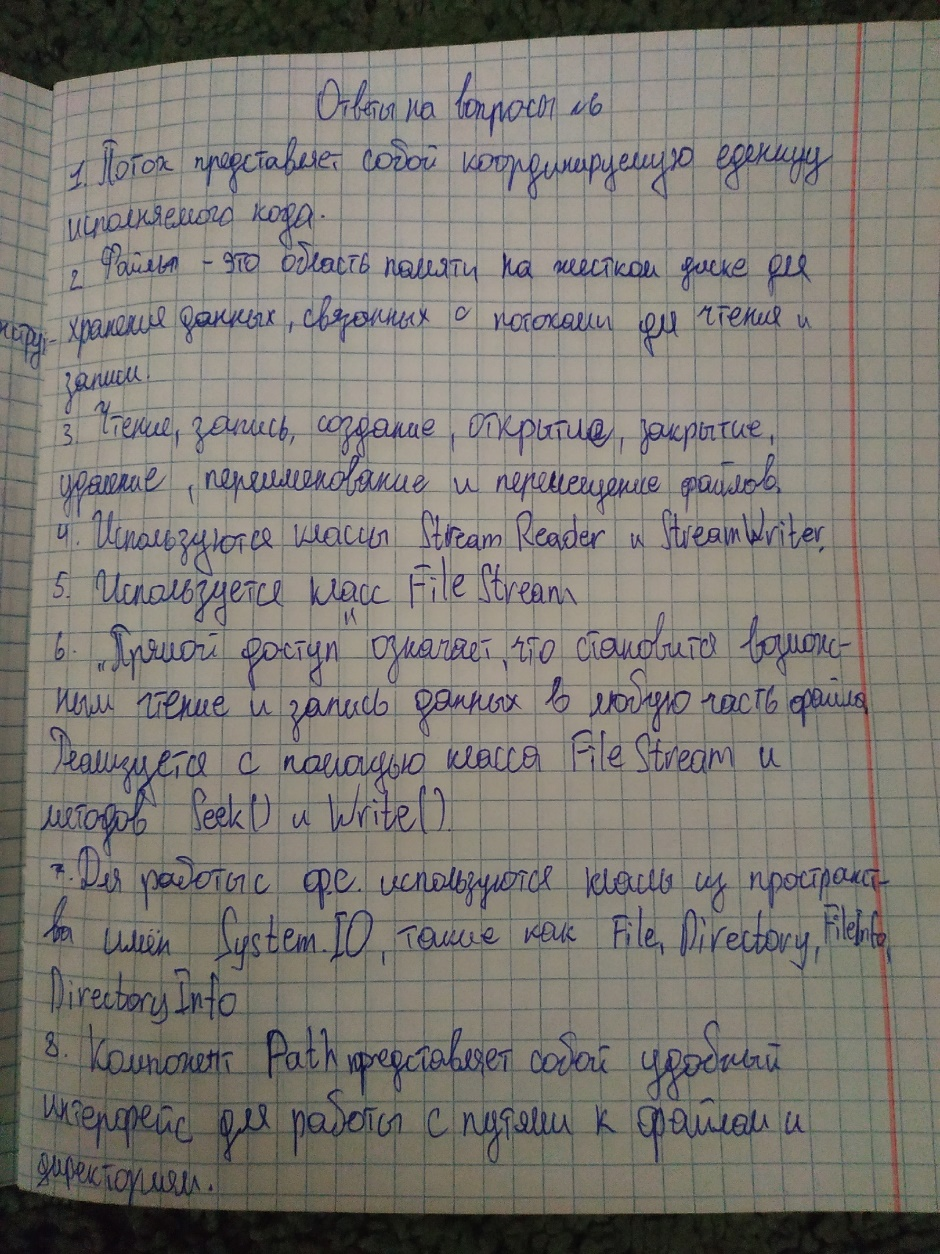 Ответы на вопросы №6
1. Поток представляет собой координируемую еденицу
исполняемого кода.
2 Файлы - это область памяти на жестком диске для
хранения данных, связанных с потоками для чтения и
записи.
3 Чтение, запись, создание, открытие, закрытие,
удаление, переименование и перемещение файлов.
4. Используются классы StreamReader и StreamWriter.
5. Используется класс FileStream
6. „Прямой доступ" означает, что становится возмож-
ным чтение и запись данных в любую часть файла
Реализуется с помощью класса FileStream и
методов Seek() и Write().
7. Для работы с ф.с. используются классы из пространст-
ва имён System.IO, такие как File, Directory, FileInfo,
DirectoryInfo
8. Компонент Path представляет собой удобный
интерфейс для работы с путями к файлам и
директориям.